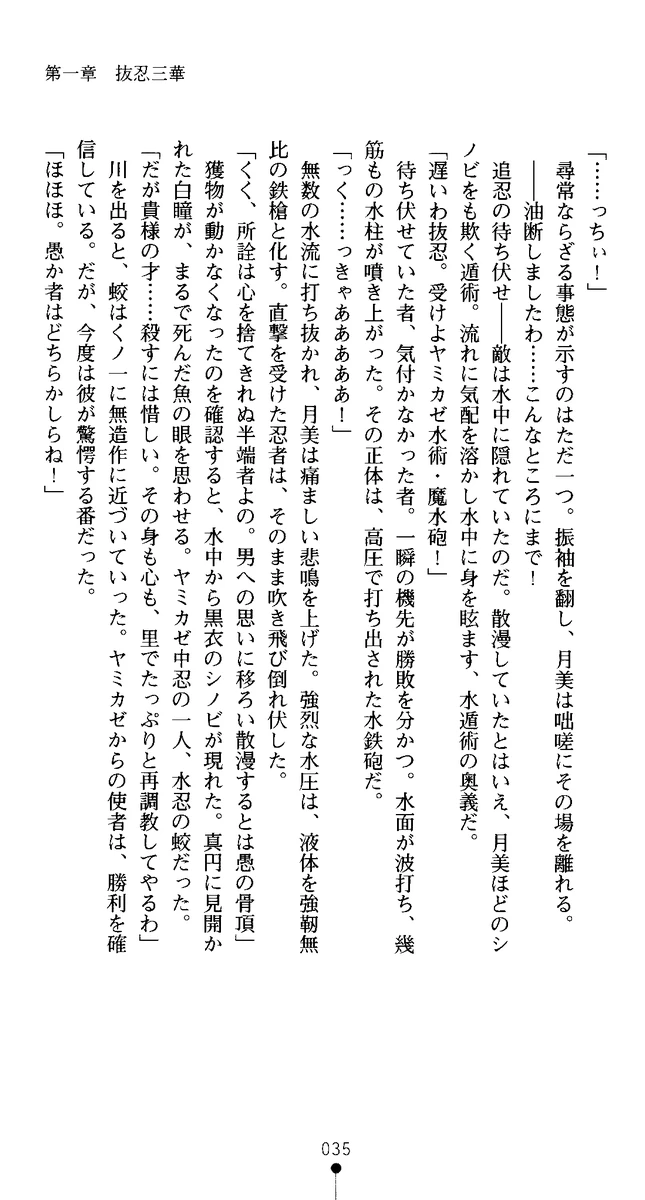 第一章　抜忍三華
「……っちぃ！」
　尋常ならざる事態が示すのはただ一つ。振袖を翻し、月美は咄嗟にその場を離れる。
　――油断しましたわ……こんなところにまで！
　追忍の待ち伏せ――敵は水中に隠れていたのだ。散漫していたとはいえ、月美ほどのシ
ノビをも欺く遁術。流れに気配を溶かし水中に身を眩ます、水遁術の奥義だ。
「遅いわ抜忍。受けよヤミカゼ水術・魔水砲！」
　待ち伏せていた者、気付かなかった者。一瞬の機先が勝敗を分かつ。水面が波打ち、幾
筋もの水柱が噴き上がった。その正体は、高圧で打ち出された水鉄砲だ。
「っく……っきゃああああぁ！」
　無数の水流に打ち抜かれ、月美は痛ましい悲鳴を上げた。強烈な水圧は、液体を強靭無
比の鉄槍と化す。直撃を受けた忍者は、そのまま吹き飛び倒れ伏した。
「くく、所詮は心を捨てきれぬ半端者よの。男への思いに移ろい散漫するとは愚の骨頂」
　獲物が動かなくなったのを確認すると、水中から黒衣のシノビが現れた。真円に見開か
れた白瞳が、まるで死んだ魚の眼を思わせる。ヤミカゼ中忍の一人、水忍の蛟だった。
「だが貴様の才……殺すには惜しい。その身も心も、里でたっぷりと再調教してやるわ」
　川を出ると、蛟はくノ一に無造作に近づいていった。ヤミカゼからの使者は、勝利を確
信している。だが、今度は彼が驚愕する番だった。
「ほほほ。愚か者はどちらかしらね！」
035